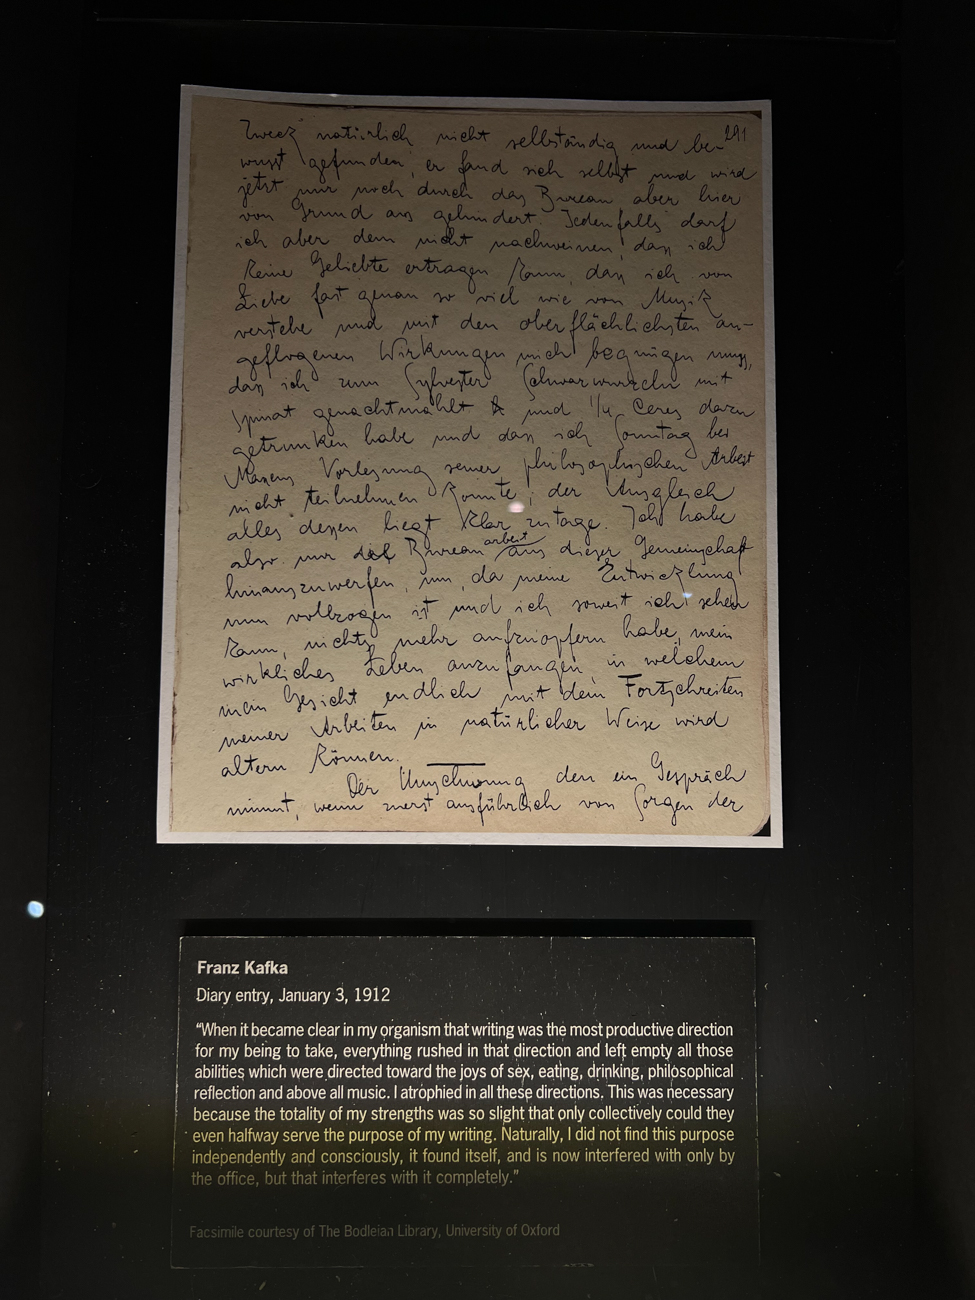 Zweck natürlich nicht selbständig und be- 291
wusst gefunden, er fand sich selbst und wird
jetzt nur noch durch das Bureau aber hier
von Grund aus gehindert. Jedenfalls darf
ich aber dem nicht nachweinen, dass ich
keine Geliebte ertragen kann, dass ich von
Liebe fast genau so viel wie von Musik
verstehe und mit den oberflächlichsten an-
geflogenen Wirkungen mich begnügen muss,
dass ich zum Sylvester Schwarzwurzeln mit
Spinat genachtmahlt und 1/4 Ceres dazu
getrunken habe und dass ich Sonntag bei
Maxens Vorlesung seiner philosophischen Arbeit
nicht teilnehmen konnte; der Ausgleich
alles dessen liegt klar zutage. Ich habe
also nur die Bureauarbeit aus dieser Gemeinschaft
hinauszuwerfen, um, da meine Entwicklung
nun vollzogen ist und ich soweit ich sehen
kann, nichts mehr aufzuopfern habe, mein
wirkliches Leben anzufangen in welchem
mein Gesicht endlich mit dem Fortschreiten
meiner Arbeiten in natürlicher Weise wird
altern können.
Der Umschwung den ein Gespräch
nimmt, wenn zuerst ausführlich von Sorgen der
Franz Kafka
Diary entry, January 3, 1912
“When it became clear in my organism that writing was the most productive direction
for my being to take, everything rushed in that direction and left empty all those
abilities which were directed toward the joys of sex, eating, drinking, philosophical
reflection and above all music. I atrophied in all these directions. This was necessary
because the totality of my strengths was so slight that only collectively could they
even halfway serve the purpose of my writing. Naturally, I did not find this purpose
independently and consciously, it found itself, and is now interfered with only by
the office, but that interferes with it completely.”
Facsimile courtesy of The Bodleian Library, University of Oxford